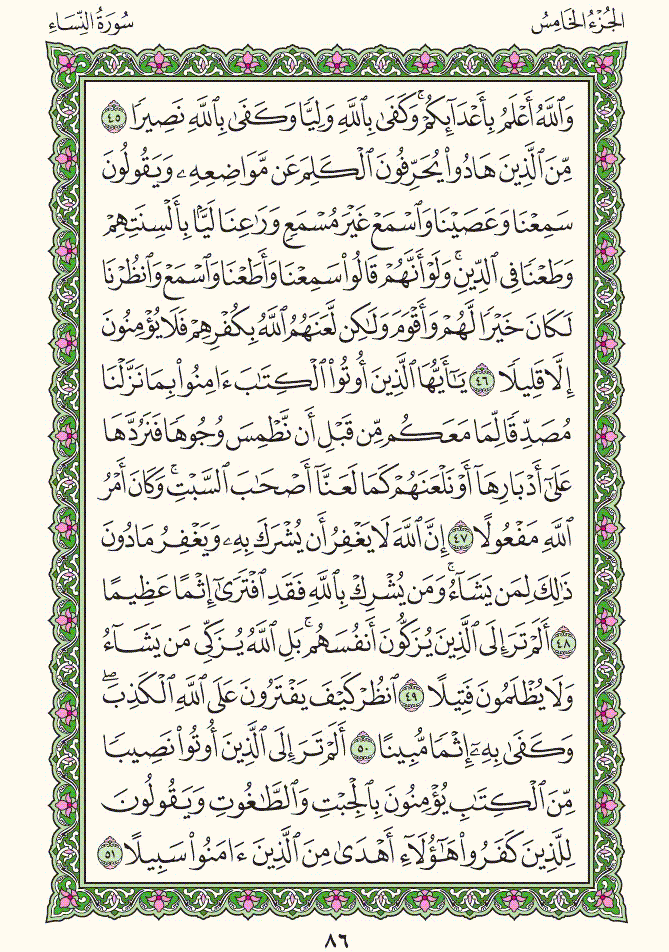 الجُزْءُ الخَامِسُ
سُورَةُ النِّسَاءِ
وَٱللَّهُ أَعْلَمُ بِأَعْدَآئِكُمْۚ وَكَفَىٰ بِٱللَّهِ وَلِيًّا وَكَفَىٰ بِٱللَّهِ نَصِيرًا ٤٥
مِّنَ ٱلَّذِينَ هَادُوا۟ يُحَرِّفُونَ ٱلْكَلِمَ عَن مَّوَاضِعِهِۦ وَيَقُولُونَ
سَمِعْنَا وَعَصَيْنَا وَٱسْمَعْ غَيْرَ مُسْمَعٍ وَرَٰعِنَا لَيًّۢا بِأَلْسِنَتِهِمْ
وَطَعْنًا فِى ٱلدِّينِۚ وَلَوْ أَنَّهُمْ قَالُوا۟ سَمِعْنَا وَأَطَعْنَا وَٱسْمَعْ وَٱنظُرْنَا
لَكَانَ خَيْرًا لَّهُمْ وَأَقْوَمَ وَلَٰكِن لَّعَنَهُمُ ٱللَّهُ بِكُفْرِهِمْ فَلَا يُؤْمِنُونَ
إِلَّا قَلِيلًا ٤٦ يَٰٓأَيُّهَا ٱلَّذِينَ أُوتُوا۟ ٱلْكِتَٰبَ ءَامِنُوا۟ بِمَا نَزَّلْنَا
مُصَدِّقًا لِّمَا مَعَكُم مِّن قَبْلِ أَن نَّطْمِسَ وُجُوهًا فَنَرُدَّهَا
عَلَىٰٓ أَدْبَارِهَآ أَوْ نَلْعَنَهُمْ كَمَا لَعَنَّآ أَصْحَٰبَ ٱلسَّبْتِۚ وَكَانَ أَمْرُ
ٱللَّهِ مَفْعُولًا ٤٧ إِنَّ ٱللَّهَ لَا يَغْفِرُ أَن يُشْرَكَ بِهِۦ وَيَغْفِرُ مَا دُونَ
ذَٰلِكَ لِمَن يَشَآءُۚ وَمَن يُشْرِكْ بِٱللَّهِ فَقَدِ ٱفْتَرَىٰٓ إِثْمًا عَظِيمًا
٤٨ أَلَمْ تَرَ إِلَى ٱلَّذِينَ يُزَكُّونَ أَنفُسَهُمۚ بَلِ ٱللَّهُ يُزَكِّى مَن يَشَآءُ
وَلَا يُظْلَمُونَ فَتِيلًا ٤٩ ٱنظُرْ كَيْفَ يَفْتَرُونَ عَلَى ٱللَّهِ ٱلْكَذِبَۖ
وَكَفَىٰ بِهِۦٓ إِثْمًا مُّبِينًا ٥٠ أَلَمْ تَرَ إِلَى ٱلَّذِينَ أُوتُوا۟ نَصِيبًا
مِّنَ ٱلْكِتَٰبِ يُؤْمِنُونَ بِٱلْجِبْتِ وَٱلطَّٰغُوتِ وَيَقُولُونَ
لِلَّذِينَ كَفَرُوا۟ هَٰٓؤُلَآءِ أَهْدَىٰ مِنَ ٱلَّذِينَ ءَامَنُوا۟ سَبِيلًا ٥١
٨٦